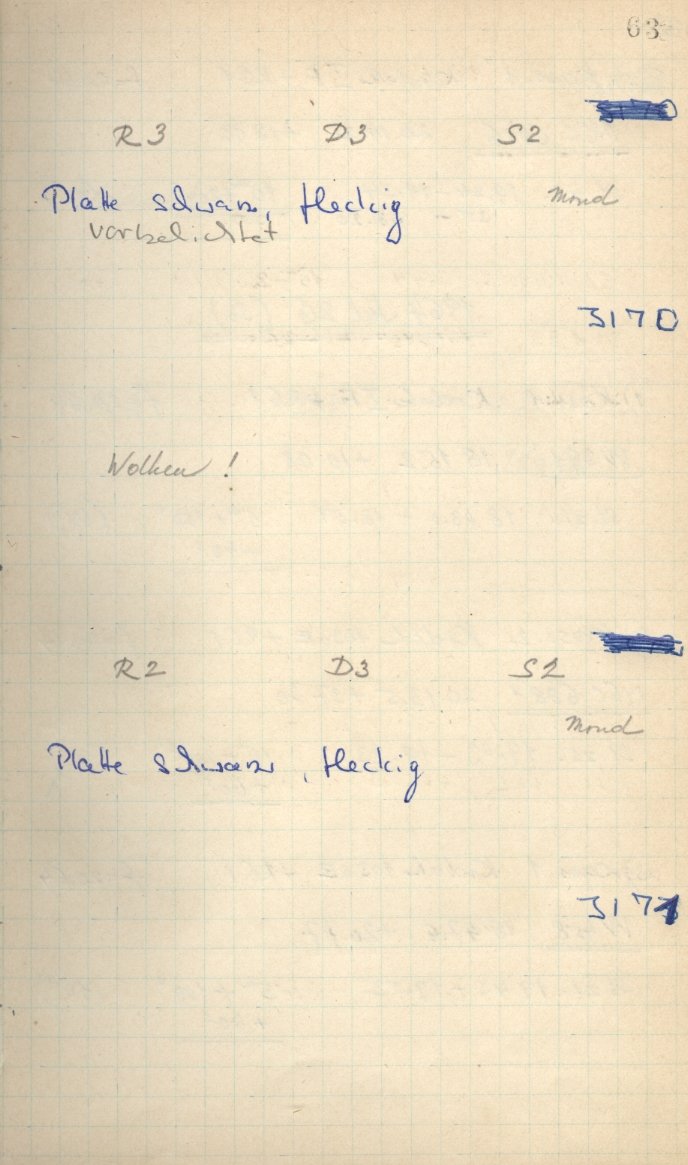 63
R3 D3 S2
Platte schwarz, fleckig Mond
vorbelichtet
3170
Wolken !
R2 D3 S2
Mond
Platte schwarz, fleckig
3171